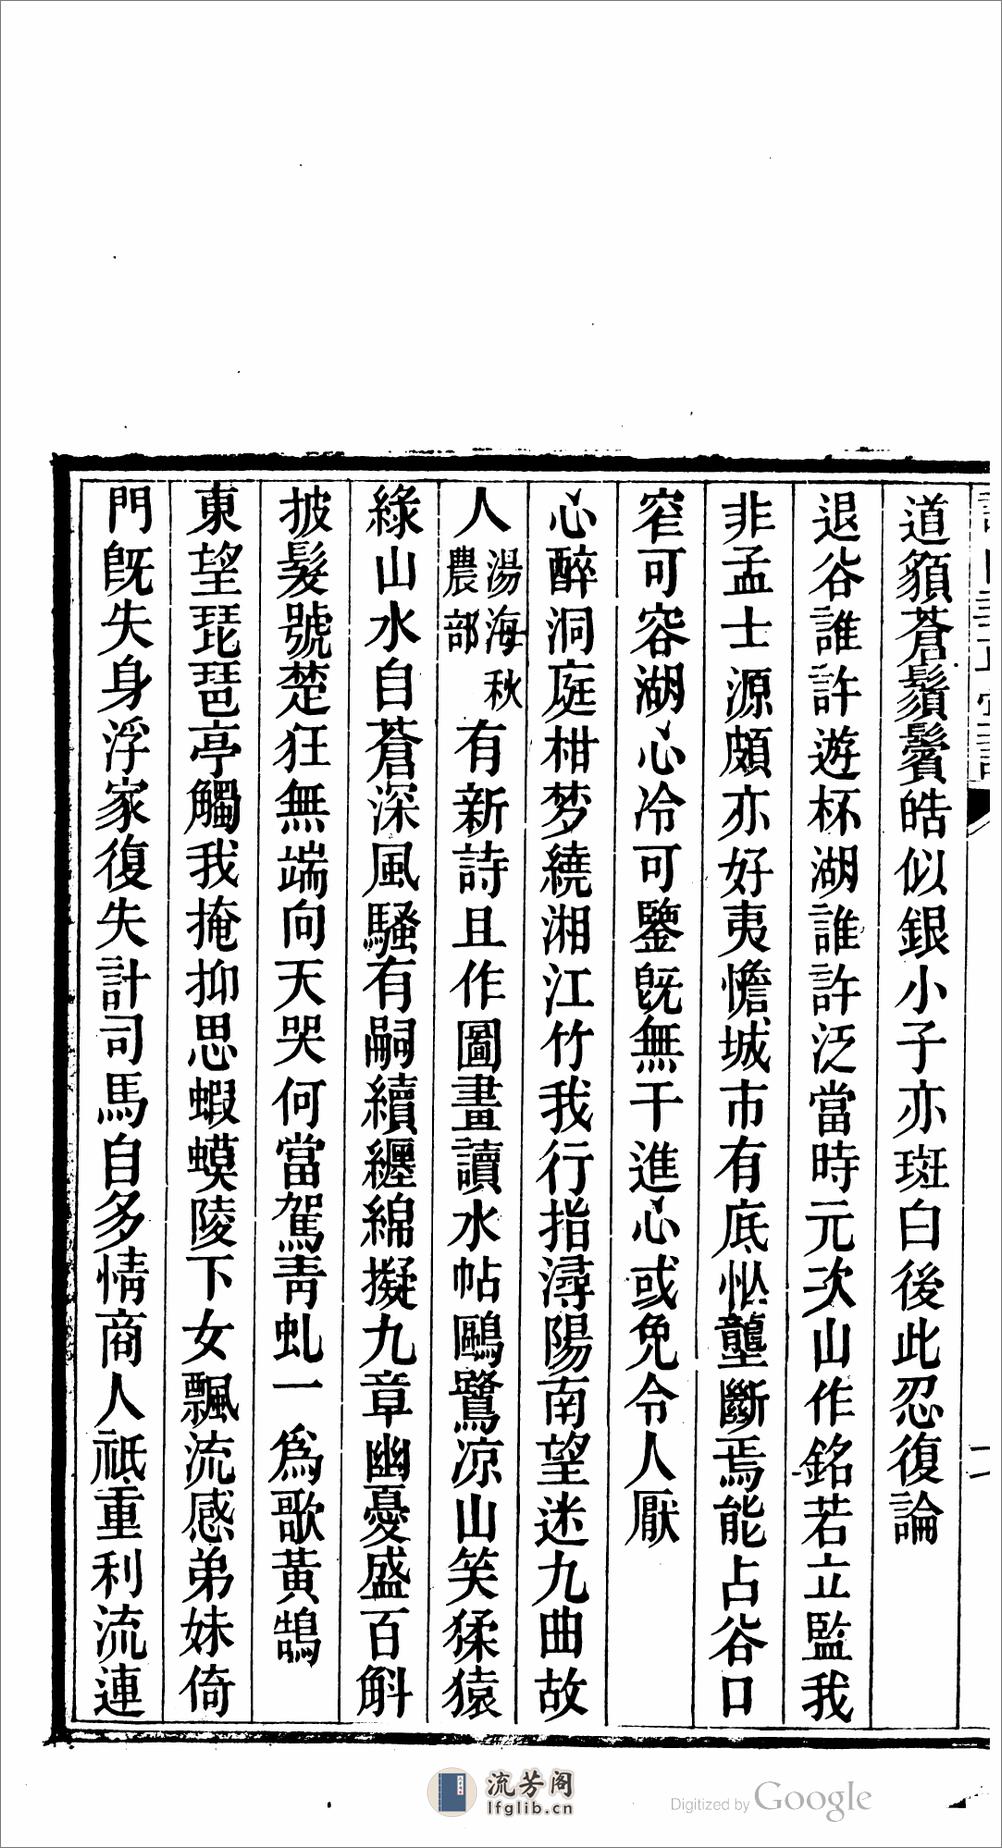 道額蒼鬚鬢皓似銀小子亦斑白後此忍復論
退谷誰許遊杯湖誰許泛當時元次山作銘若立監我
非孟士源頗亦好夷憺城市有底忙壟斷焉能占谷口
窄可容湖心冷可鑒旣無干進心或免令人厭
心醉洞庭柑梦繞湘江竹我行指潯陽南望迷九曲故
人湯海秋農部有新詩且作圖畫讀水帖鷗鷺凉山笑猱猿
綠山水自蒼深風騷有嗣續纏綿擬九章幽憂盛百斛
披髮號楚狂無端向天哭何當駕靑虬一爲歌黃鵠
東望琵琶亭觸我掩抑思蝦蟆陵下女飄流感弟妹倚
門旣失身浮家復失計司馬自多情商人祇重利流連
流芳阁
lfglib.cn
Digitized by Google